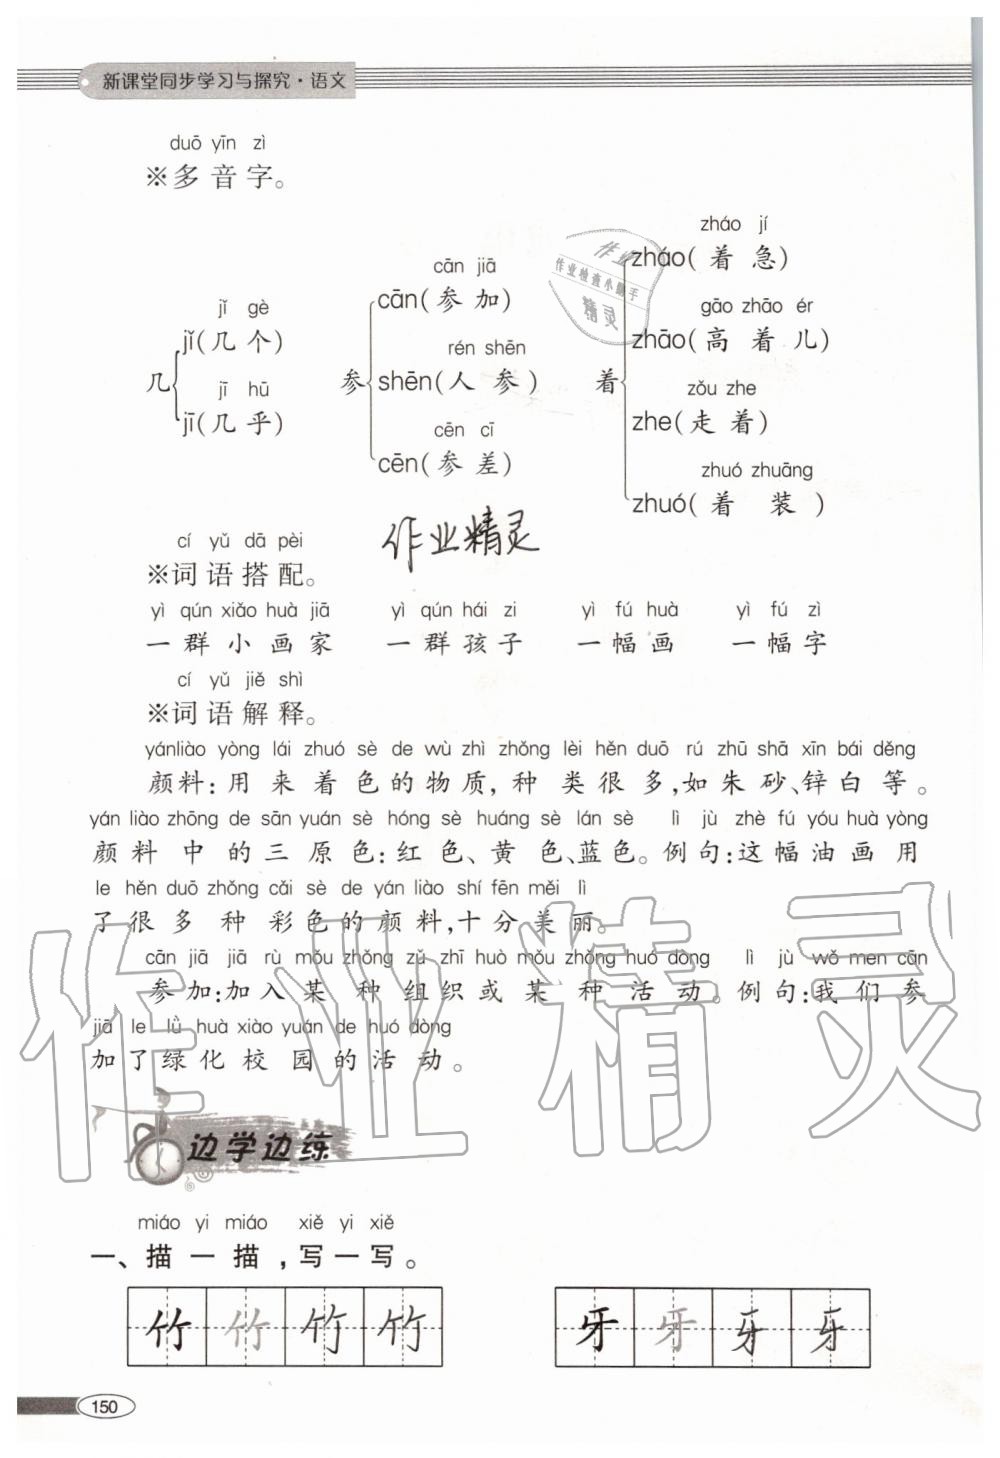 新课堂同步学习与探究·语文
duō yīn zì
※多音字。
zháo jí
zháo(着急)
cān jiā
cān(参加)
jǐ gè
jǐ(几个)
gāo zhāo ér
zhāo(高着儿)
rén shēn
几
参
shēn(人参)
着
jī hū
jī(几乎)
zǒu zhe
zhe(走着)
cēn cī
cēn(参差)
zhuó zhuāng
zhuó(着装)
作业
作业检查小能手
精灵
作业精灵
cí yǔ dā pèi
※词语搭配。
yì qún xiǎo huà jiā yì qún hái zi yì fú huà yì fú zì
一群小画家 一群孩子 一幅画 一幅字
cí yǔ jiě shì
※词语解释。
yánliào yòng lái zhuó sè de wù zhì zhǒng lèi hěn duō rú zhū shā xīn bái děng
颜料:用来着色的物质,种类很多,如朱砂、锌白等。
yán liào zhōng de sān yuán sè hóng sè huáng sè lán sè lì jù zhè fú yóu huà yòng
颜料中的三原色:红色、黄色、蓝色。例句:这幅油画用
le hěn duō zhǒng cǎi sè de yán liào shí fēn měi lì
了很多种彩色的颜料,十分美丽。
cān jiā jiā rù mǒu zhǒng zǔ zhī huò mǒu zhǒng huó dòng lì jù wǒ men cān
参加:加入某种组织或某种活动。例句:我们参
jiā le lǜ huà xiào yuán de huó dòng
加了绿化校园的活动。
作业精灵
边学边练
miáo yi miáo xiě yi xiě
一、描一描,写一写。
竹竹竹竹 牙牙牙牙
150